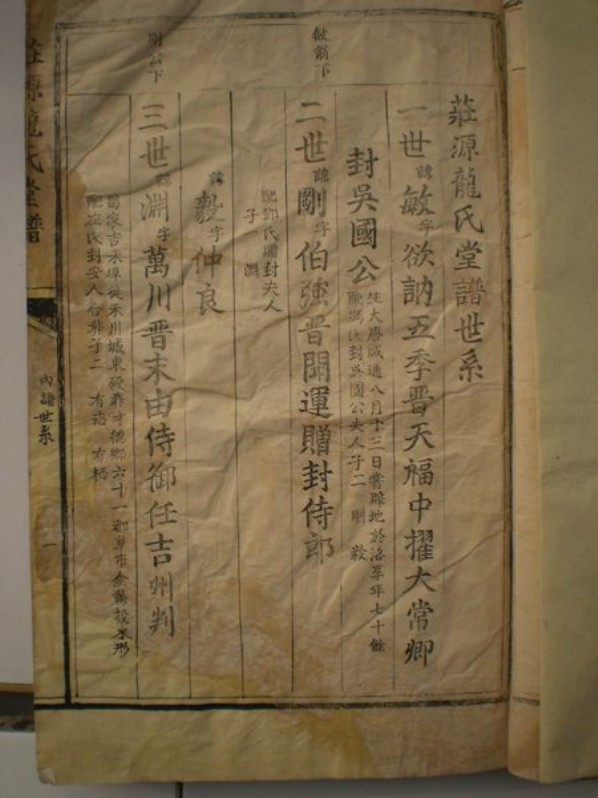 莊源龍氏堂譜世系
一世諱敏字欲訥五季晋天福中擢大常卿
封吳國公
生大唐咸通八月十三日嘗肄地於洛享年七十餘
配馮氏封吳國公夫人子二 剛 毅
敏翁下
二世諱剛字伯強晋開運贈封侍郎
配鄧氏贈封夫人
子 淵
諱毅字仲良
剛公下
三世諱淵字萬川晋末由侍御任吉州判
六十一都阜市金鵞投水形
配左氏封安人 合葬子二 有志 有栖
莊源龍氏堂譜
內譜世系
一